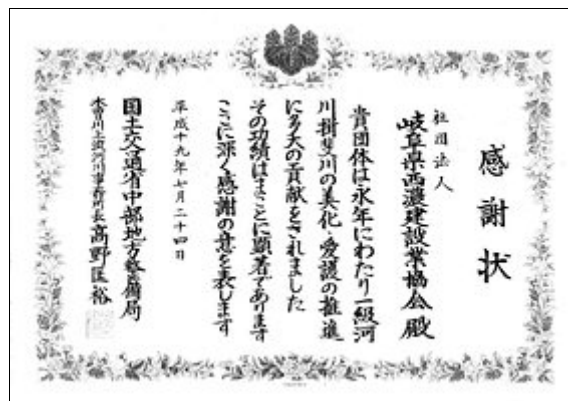 感謝状
社団法人
岐阜県西濃建設業協会 殿
貴団体は永年にわたり一級河
川揖斐川の美化・愛護の推進
に多大の貢献をされました
その功績はまことに顕著であります
ここに深く感謝の意を表します
平成十九年七月二十四日
国土交通省中部地方整備局
木曽川上流河川事務所長 高野匡裕